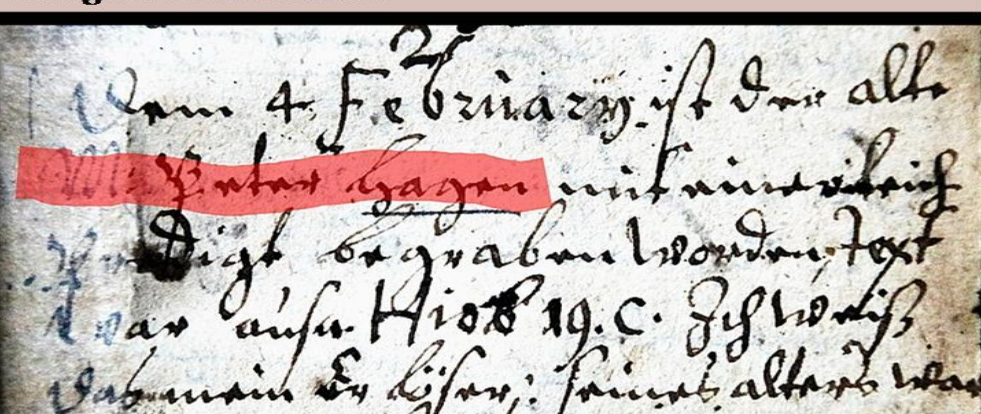 Dem 4 February ist der alte
M. Peter Hagen mit einer leich
Predigt begraben worden, Text
war aus Hiob 19. C. Ich weiß
das mein Erlöser; seines alters war